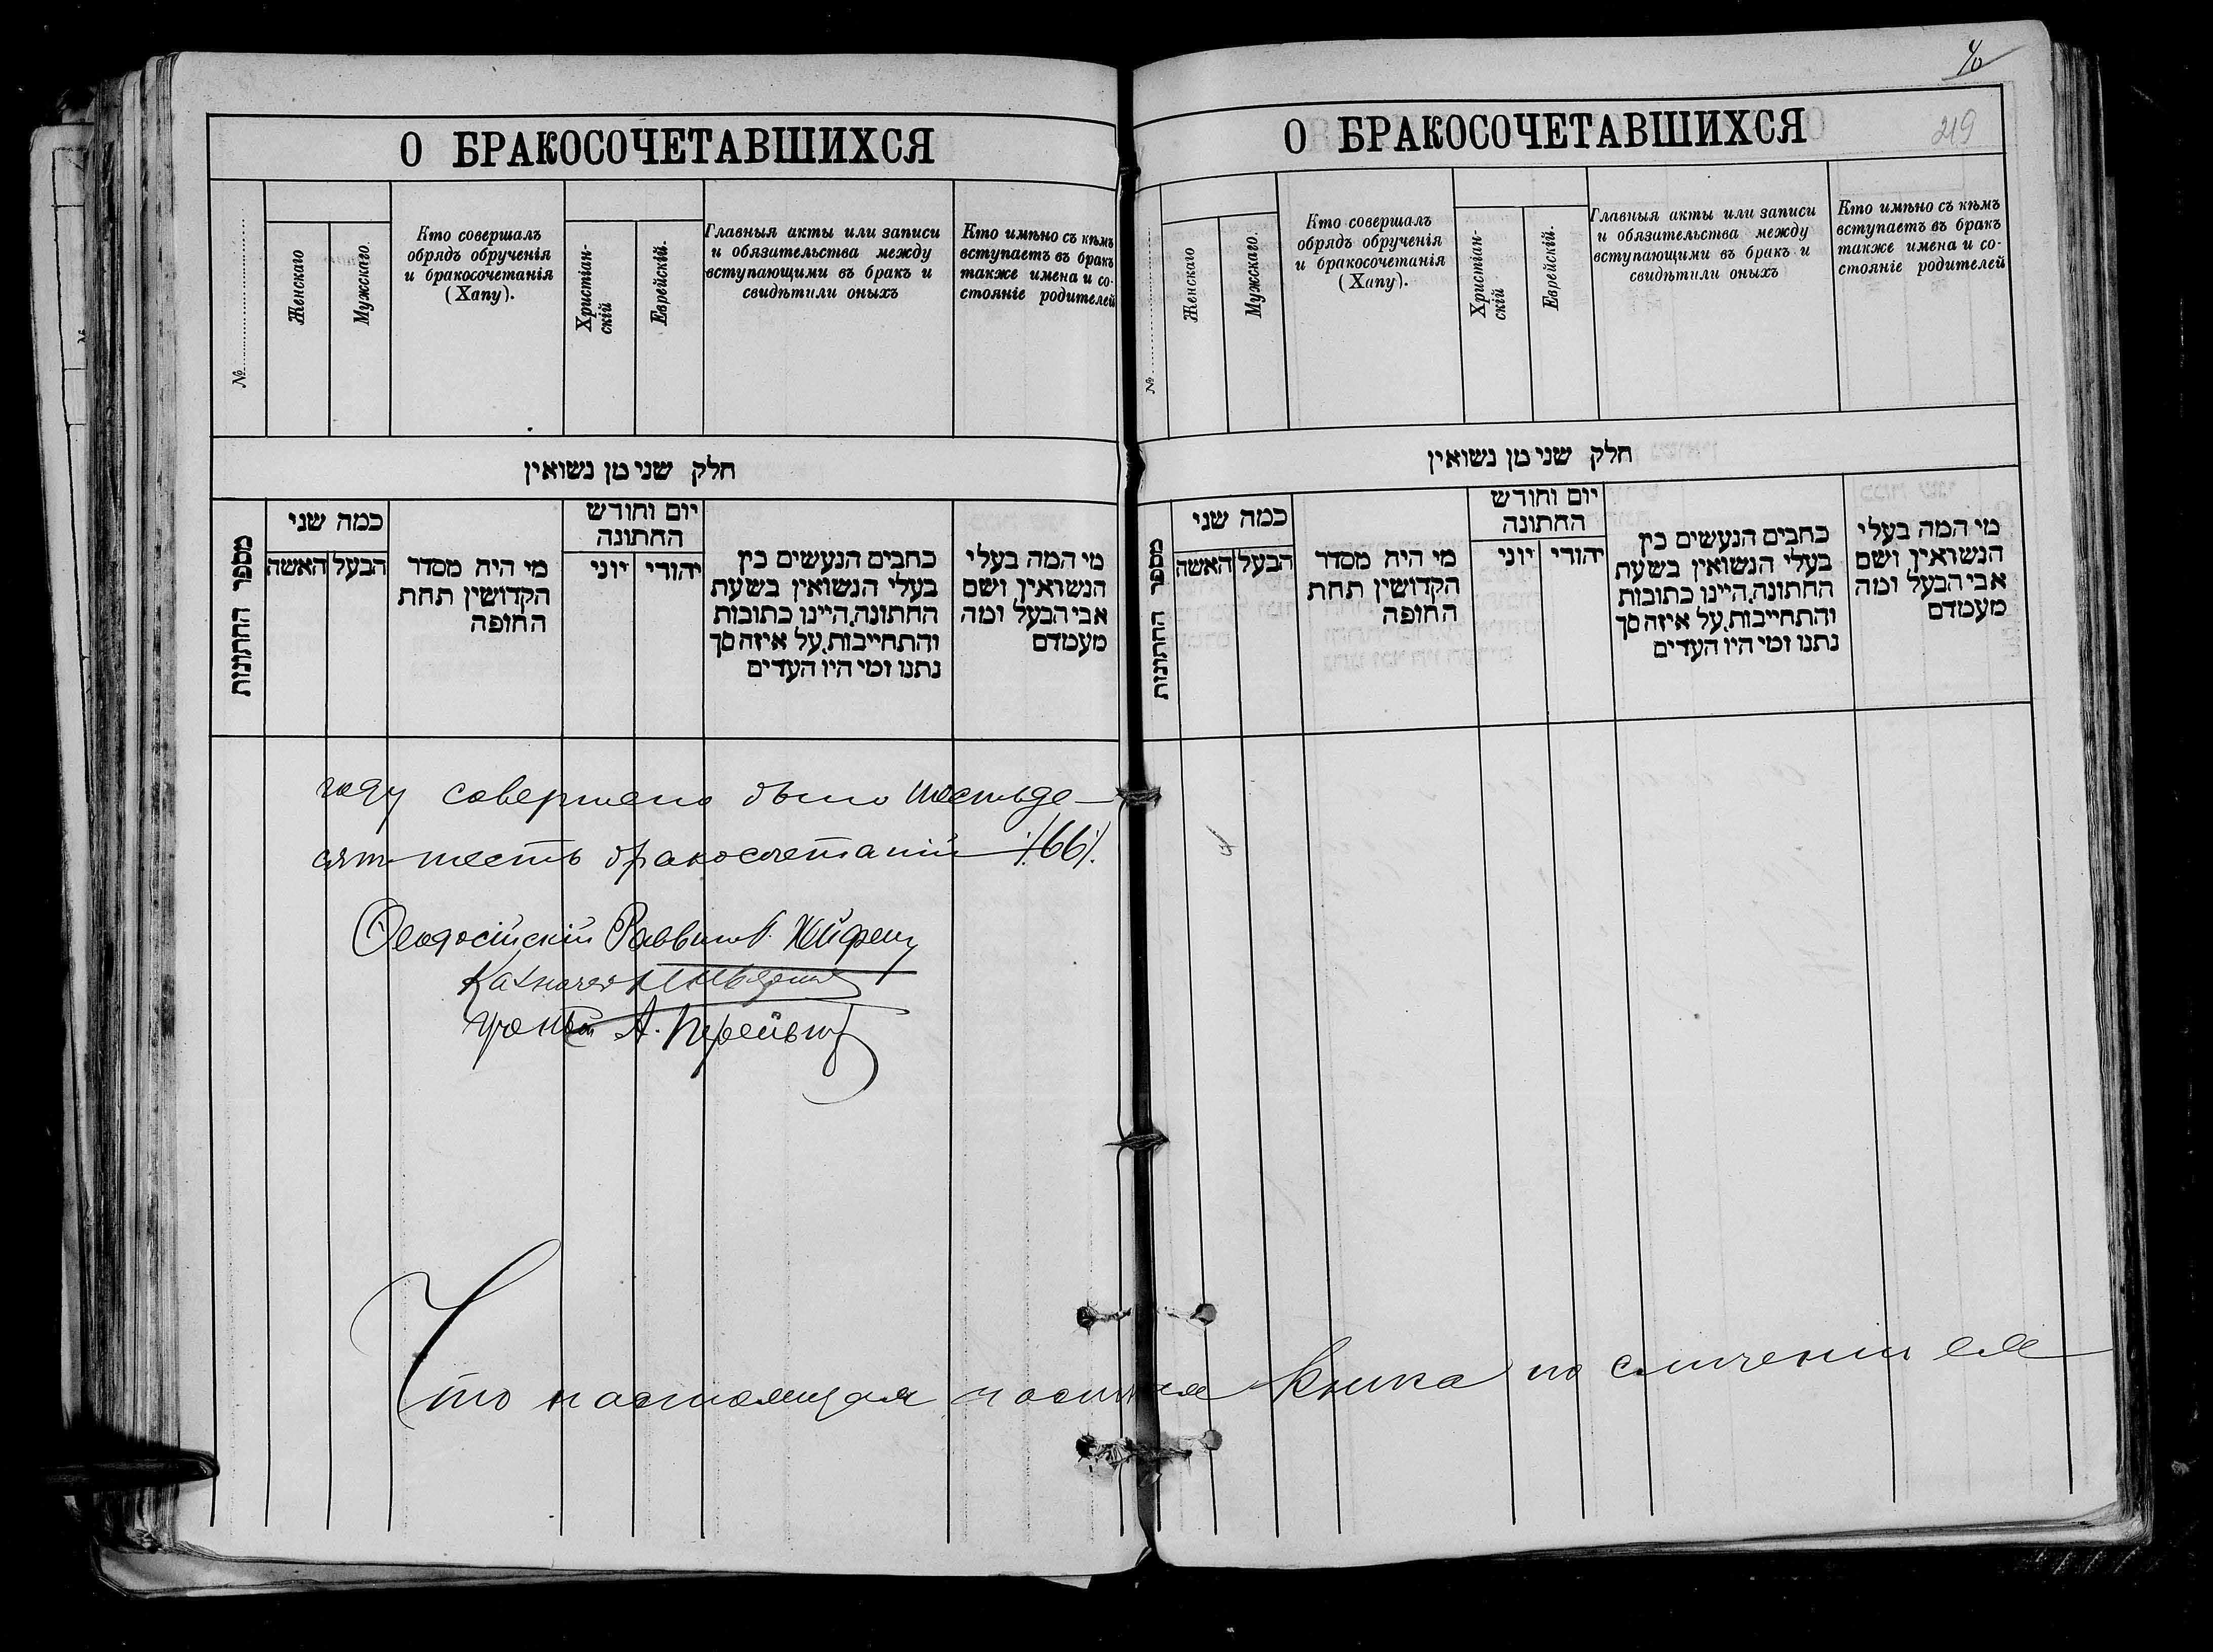 О БРАКОСОЧЕТАВШИХСЯ
№
Женскаго
Мужскаго.
Кто совершалъ
обрядъ обрученія
и бракосочетанія
(Хапу).
Христіан-
скій
Еврейскій.
Главныя акты или записи
и обязательства между
вступающими въ бракъ и
свидѣтили оныхъ
Кто имѣно съ кѣмъ
вступаетъ въ бракъ
также имена и со-
стояніе родителей
חלק שני מן נשואין
מספר החתונות
כמה שני
הבעל
האשה
מי היה מסדר
הקדושין תחת
החופה
יום וחודש
החתונה
יהודי
יוני
כתבים הנעשים בין
בעלי הנשואין בשעת
החתונה.היינו כתובות
והתחייבות.על איזה סך
נתנו ומי היו העדים
מי המה בעלי
הנשואין ושם
אבי הבעל ומה
מעמדם
году совершено было шестьде-
сят шесть бракосочетаній /66/.
Ѳеодосійскій Раввинъ
Казначей
А.
40
219
О БРАКОСОЧЕТАВШИХСЯ
№
Женскаго
Мужскаго.
Кто совершалъ
обрядъ обрученія
и бракосочетанія
(Хапу).
Христіан-
скій
Еврейскій.
Главныя акты или записи
и обязательства между
вступающими въ бракъ и
свидѣтили оныхъ
Кто имѣно съ кѣмъ
вступаетъ въ бракъ
также имена и со-
стояніе родителей
חלק שני מן נשואין
מספר החתונות
כמה שני
הבעל
האשה
מי היה מסדר
הקדושין תחת
החופה
יום וחודש
החתונה
יהודי
יוני
כתבים הנעשים בין
בעלי הנשואין בשעת
החתונה.היינו כתובות
והתחייבות.על איזה סך
נתנו ומי היו העדים
מי המה בעלי
הנשואין ושם
אבי הבעל ומה
מעמדם
Что настоящая книга по сличеніи ея